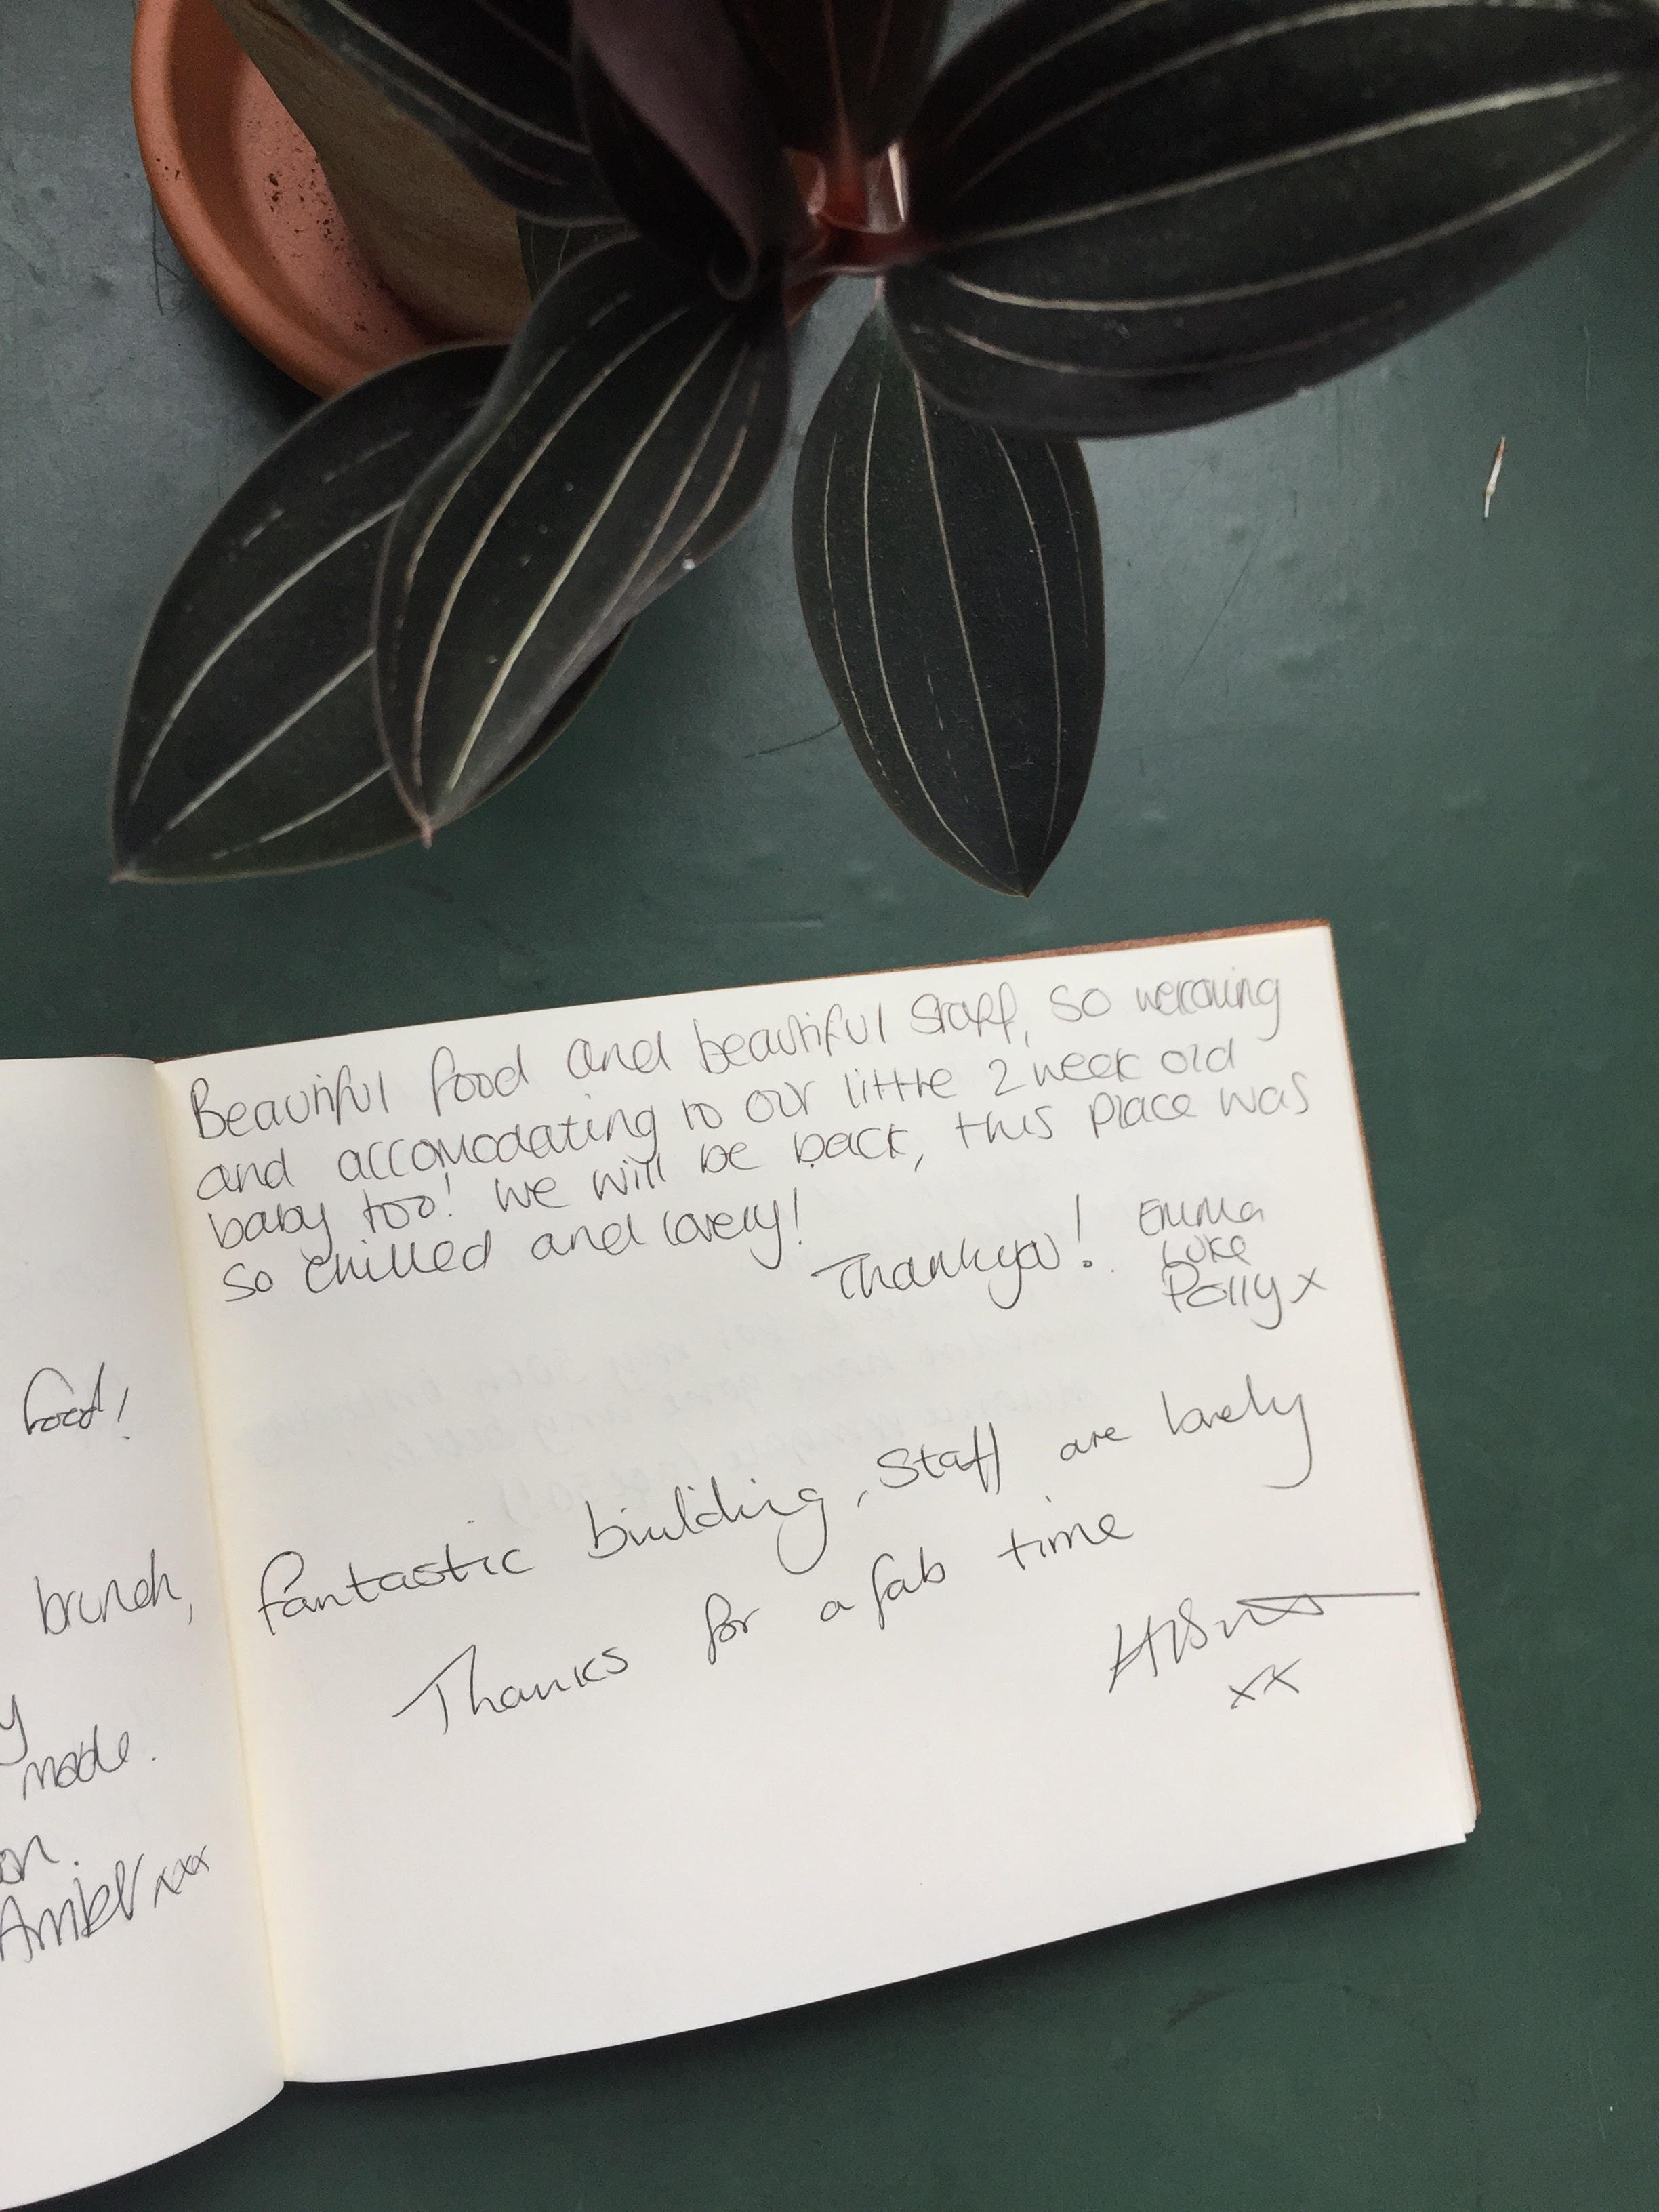 food!
brunch,
y
made.
on.
Amber xxx
Beautiful food and beautiful staff, so welcoming
and accomodating to our little 2 week old
baby too! we will be back, this place was
so chilled and lovely!
Thankyou!
Emma
Luke
Polly x
Fantastic building, Staff are lovely
Thanks for a fab time
xx